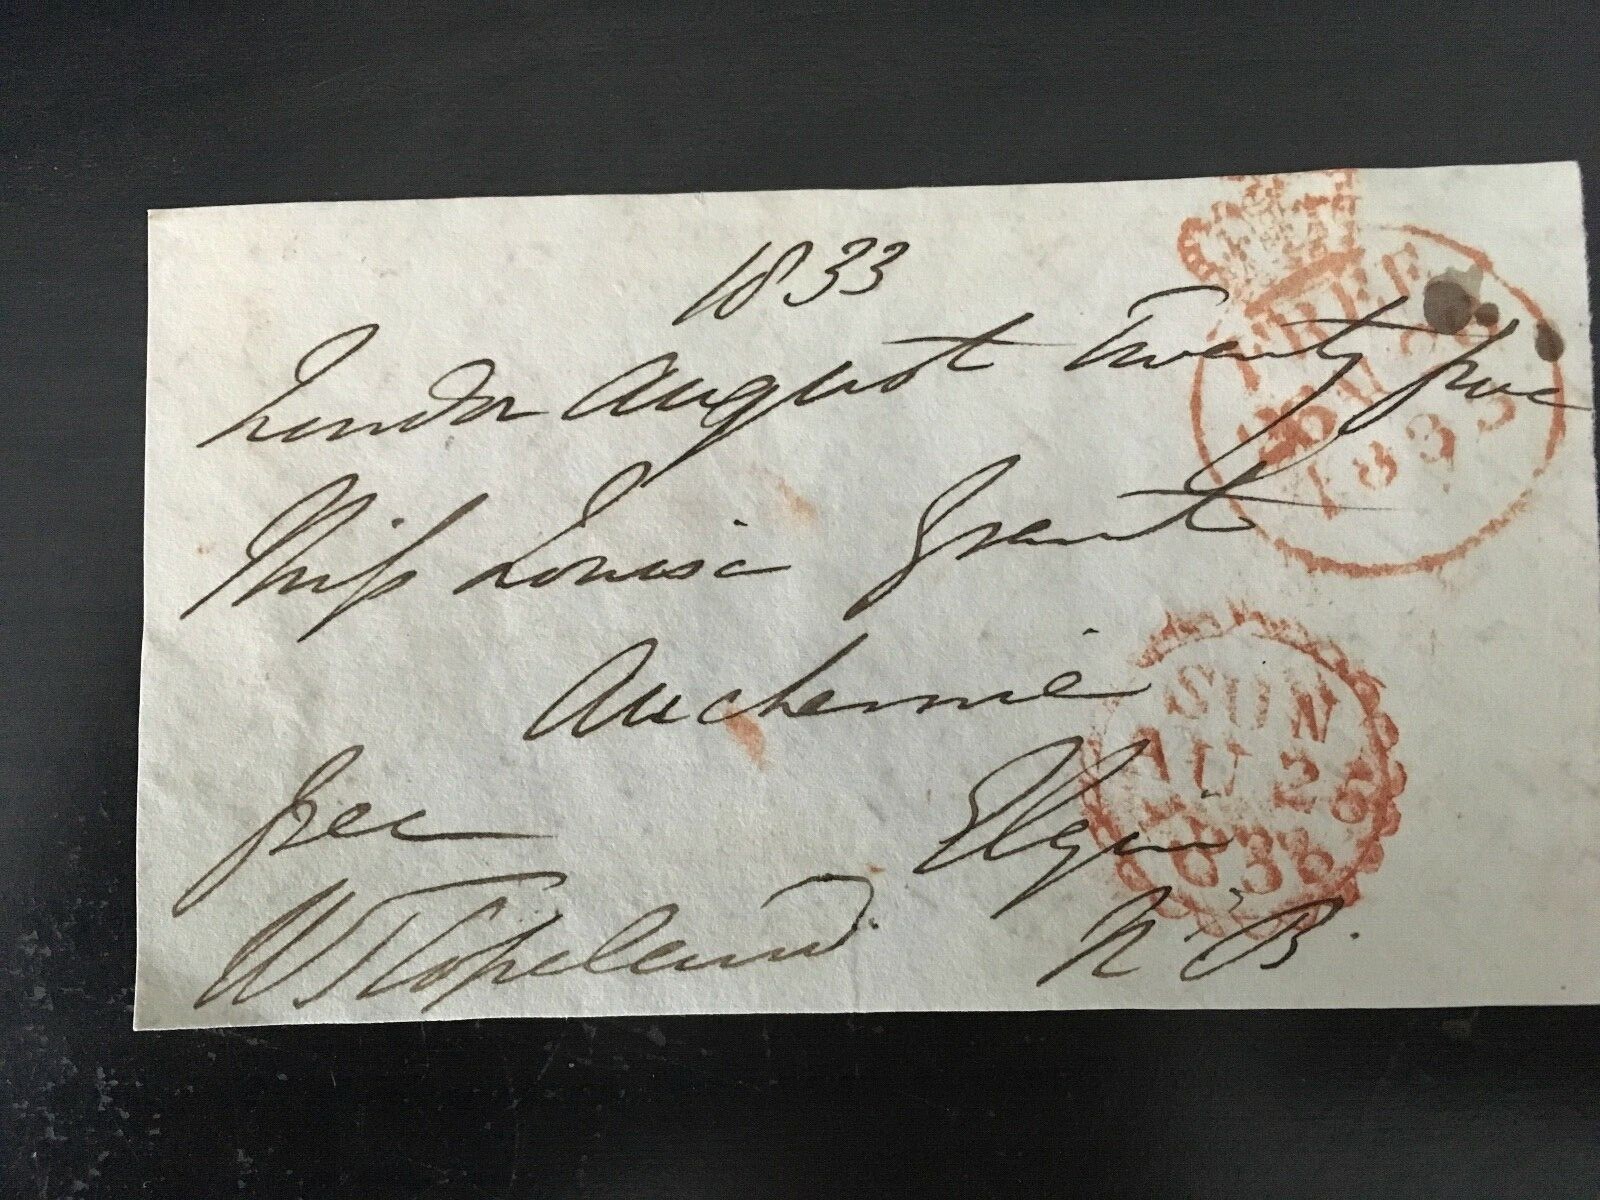 1833
London August Twenty five
Miss Louisa Grant
Auchernie
free
Elgin
WT Copeland.
N.B.
FREE
1833
SUN
AU 25
1833